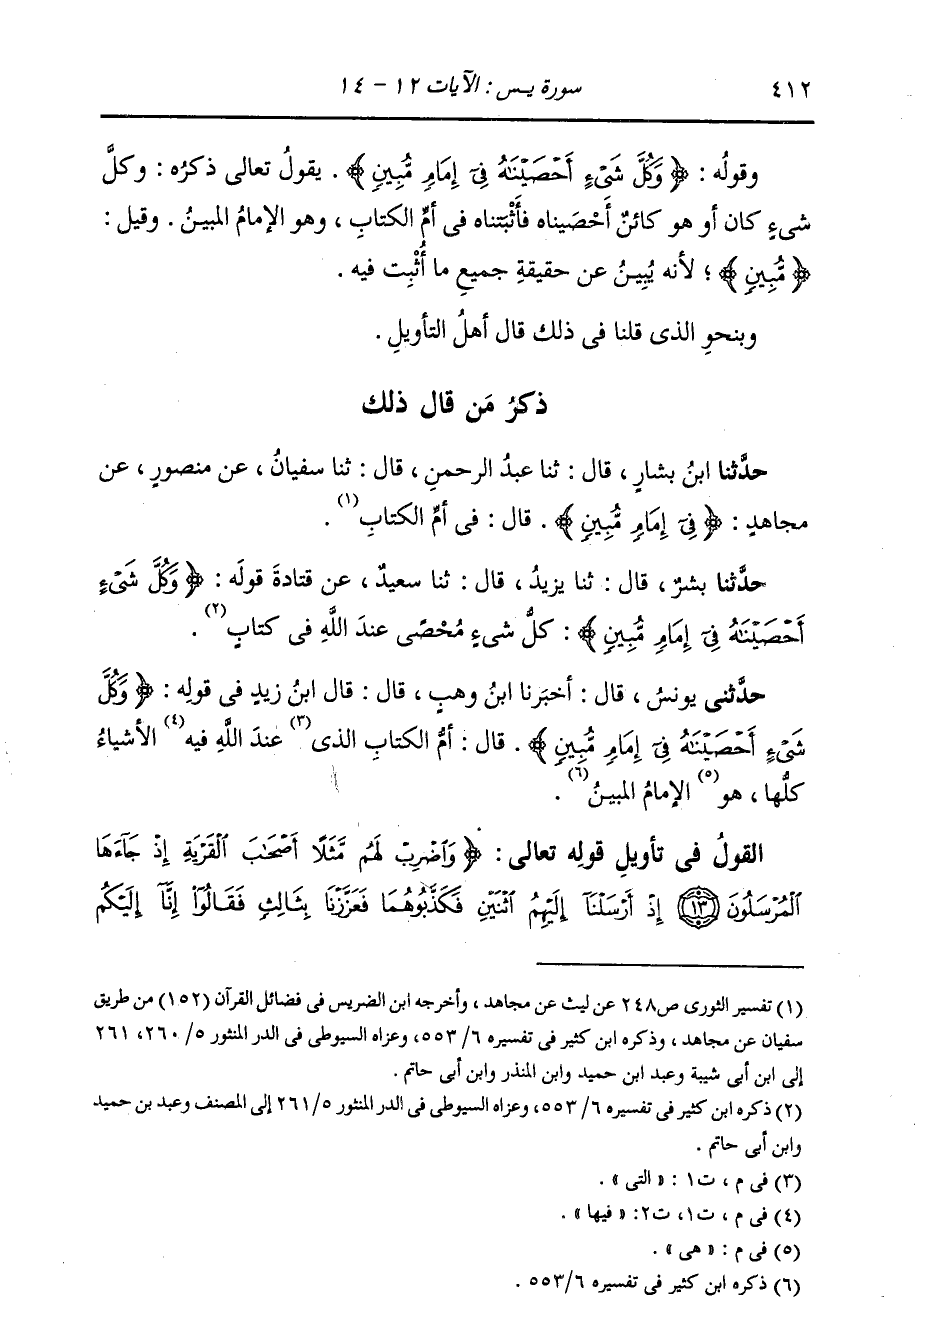 ٤١٢ سورة يس : الآيات ١٢ - ١٤
وقولُه : ﴿ وَكُلَّ شَىْءٍ أَحْصَيْنَٰهُ فِىٓ إِمَامٍ مُّبِينٍ ﴾ . يقولُ تعالى ذكرُه : وكلَّ
شىءٍ كان أو هو كائنٌ أَحْصَيناه فأَثْبَتناه فى أمِّ الكتابِ ، وهو الإمامُ المبينُ . وقيل :
﴿ مُّبِينٍ ﴾ ؛ لأنه يُبِينُ عن حقيقةِ جميعِ ما أُثْبِت فيه .
وبنحوِ الذى قلنا فى ذلك قال أهلُ التأويلِ .
ذكرُ مَن قال ذلك
حدَّثنا ابنُ بشارٍ ، قال : ثنا عبدُ الرحمنِ ، قال : ثنا سفيانُ ، عن منصورٍ ، عن
مجاهدٍ : ﴿ فِىٓ إِمَامٍ مُّبِينٍ ﴾ . قال : فى أمِّ الكتابِ (١) .
حدَّثنا بشرٌ ، قال : ثنا يزيدُ ، قال : ثنا سعيدٌ ، عن قتادةَ قولَه : ﴿ وَكُلَّ شَىْءٍ
أَحْصَيْنَٰهُ فِىٓ إِمَامٍ مُّبِينٍ ﴾ : كلُّ شىءٍ مُحْصًى عندَ اللَّهِ فى كتابٍ (٢) .
حدَّثنى يونسُ ، قال : أخبَرنا ابنُ وهبٍ ، قال : قال ابنُ زيدٍ فى قولِه : ﴿ وَكُلَّ
شَىْءٍ أَحْصَيْنَٰهُ فِىٓ إِمَامٍ مُّبِينٍ ﴾ . قال : أمُّ الكتابِ الذى (٣) عندَ اللَّهِ فيه (٤) الأشياءُ
كلُّها ، هو (٥) الإمامُ المبينُ (٦) .
القولُ فى تأويلِ قولِه تعالى : ﴿ وَٱضْرِبْ لَهُم مَّثَلًا أَصْحَٰبَ ٱلْقَرْيَةِ إِذْ جَآءَهَا
ٱلْمُرْسَلُونَ ١٣ إِذْ أَرْسَلْنَآ إِلَيْهِمُ ٱثْنَيْنِ فَكَذَّبُوهُمَا فَعَزَّزْنَا بِثَالِثٍ فَقَالُوٓا۟ إِنَّآ إِلَيْكُم
(١) تفسير الثورى ص٢٤٨ عن ليث عن مجاهد ، وأخرجه ابن الضريس فى فضائل القرآن (١٥٢) من طريق
سفيان عن مجاهد ، وذكره ابن كثير فى تفسيره ٦/ ٥٥٣، وعزاه السيوطى فى الدر المنثور ٥/ ٢٦٠، ٢٦١
إلى ابن أبى شيبة وعبد ابن حميد وابن المنذر وابن أبى حاتم .
(٢) ذكره ابن كثير فى تفسيره ٦/ ٥٥٣، وعزاه السيوطى فى الدر المنثور ٥/ ٢٦١ إلى المصنف وعبد بن حميد
وابن أبى حاتم .
(٣) فى م ، ت١ : « التى » .
(٤) فى م ، ت١، ت٢: « فيها » .
(٥) فى م : « هى » .
(٦) ذكره ابن كثير فى تفسيره ٦/ ٥٥٣ .